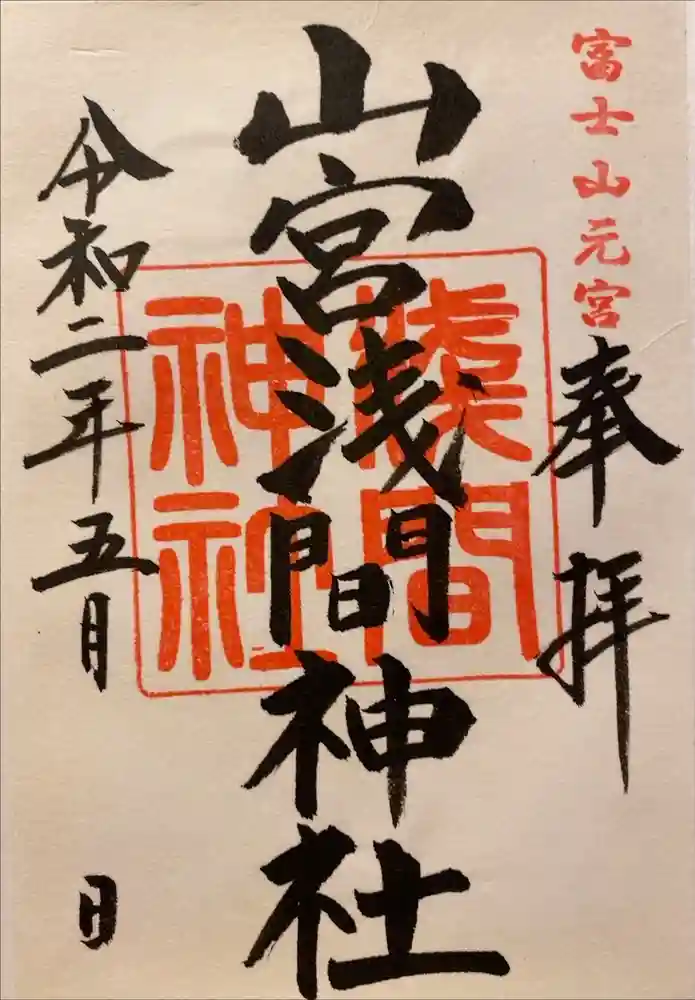 富士山元宮
奉拝
山宮浅間神社
淺間
神社
令和二年五月 日